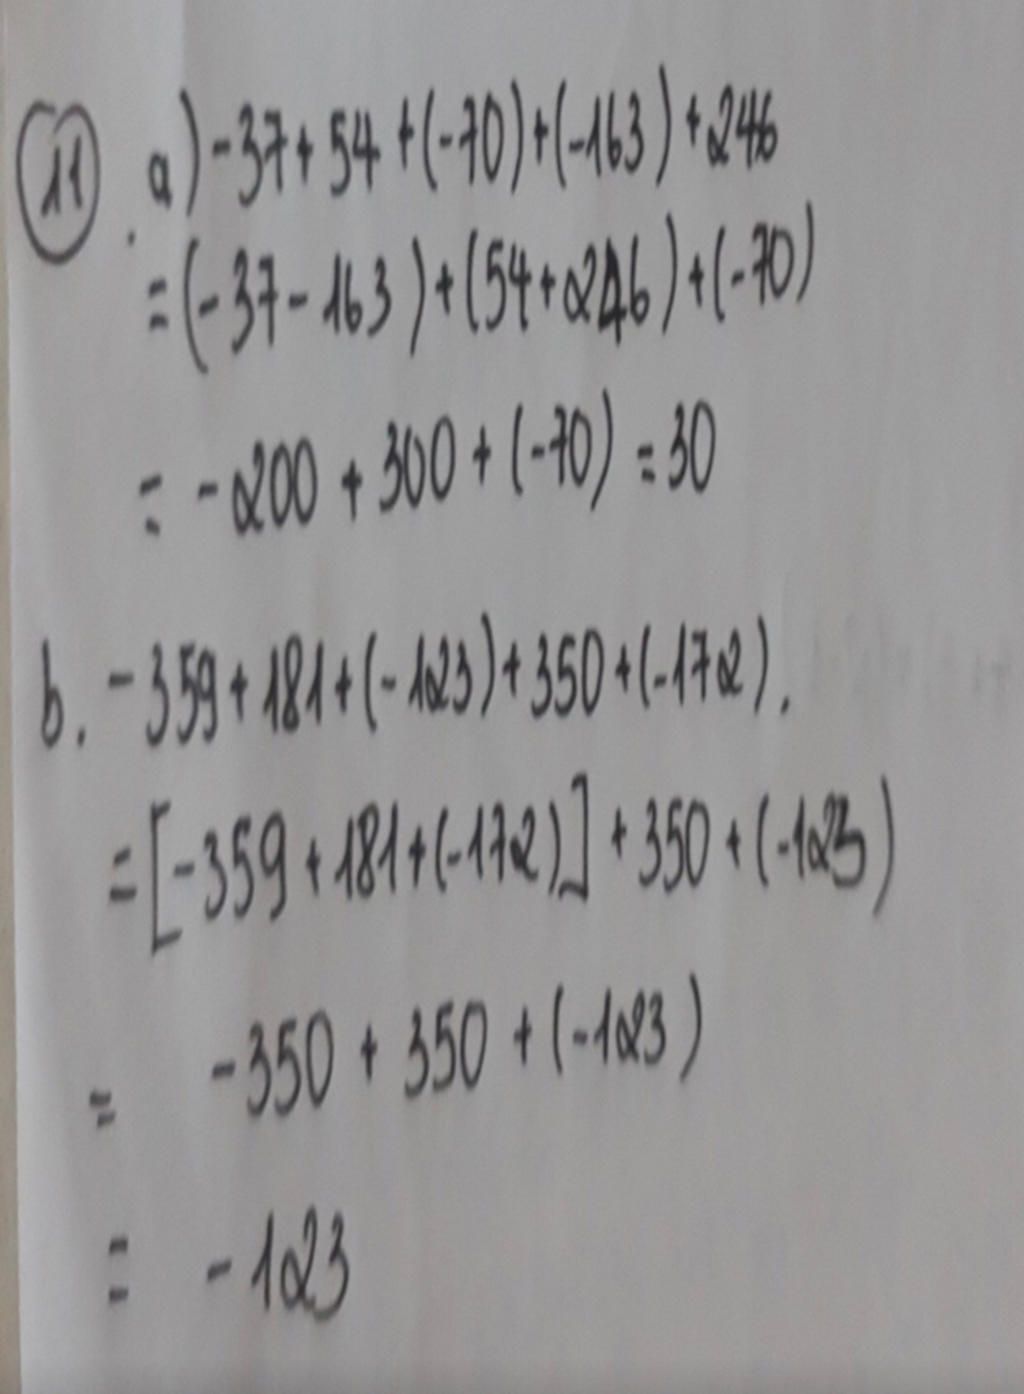 11. a) -37+54+(-70)+(-163)+246
=(-37-163)+(54+246)+(-70)
= -200+300+(-70)=30
b. -359+181+(-123)+350+(-172).
=[-359+181+(-172)]+350+(-123)
= -350+350+(-123)
= -123